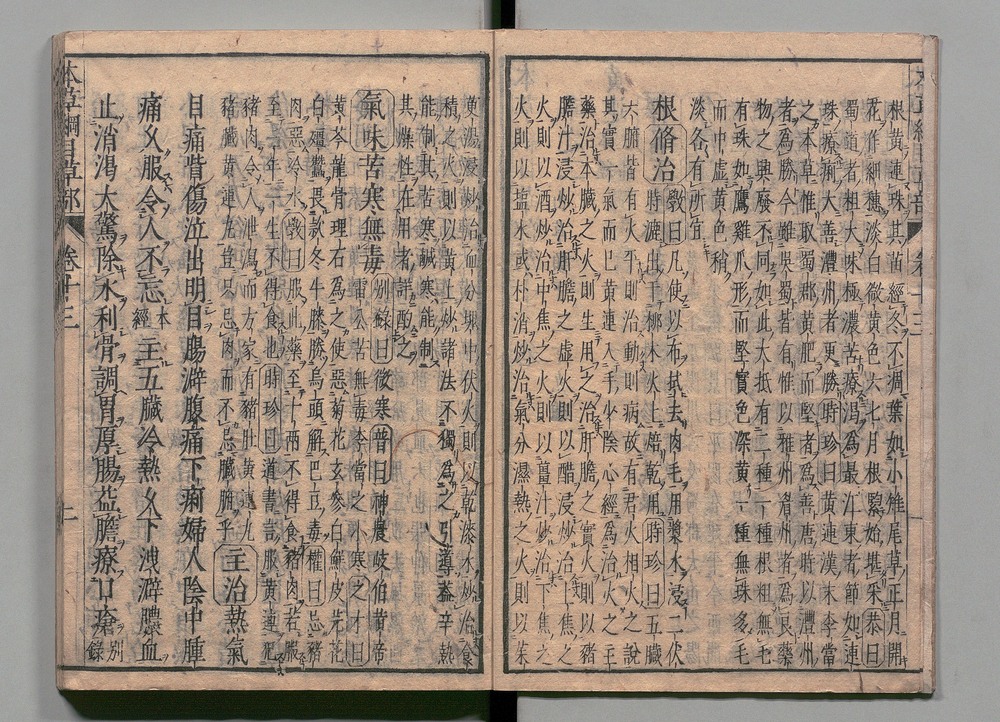 根黃連珠其苗經冬不凋葉如小雉尾草正月開
花作細穗淡白微黃色六七月根緊始堪采恭曰
蜀道者粗大味極濃苦療渴為最江東者節如連
珠療痢大善澧州者更勝時珍曰黃連漢末李當
之本草惟取蜀郡黃肥而堅者為善唐時以澧州
者為勝今雖吳蜀皆有惟以雅州眉州者為良藥
物之興廢不同如此大抵有二種一種根粗無毛
有珠如鷹雞爪形而堅實色深黃一種無珠多毛
而中虛黃色稍
淡各有所宜
根修治斅曰凡使以布拭去肉毛用漿水浸二伏
時漉出于柳木火上焙乾用時珍曰五臟
六腑皆有火平則治動則病故有君火相火之說
其實一氣而已黃連入手少陰心經為治火之主
藥治本臟之火則生用之治肝膽之實火則以豬
膽汁浸炒治肝膽之虛火則以醋浸炒治上焦之
火則以酒炒治中焦之火則以薑汁炒治下焦之
火則以鹽水或朴消炒治氣分濕熱之火則以茱
萸湯浸炒治血分塊中伏火則以乾漆水炒治食
積之火則以黃土炒諸法不獨為之引導蓋辛熱
能制其苦寒鹹寒能制
其燥性在用者詳酌之
氣味苦寒無毒別錄曰微寒普曰神農岐伯黃帝
雷公苦無毒李當之小寒之才曰
黃芩龍骨理石為之使惡菊花玄參白鮮皮芫花
白殭蠶畏款冬牛膝勝烏頭解巴豆毒權曰忌豬
肉惡冷水斅曰服此藥至十兩不得食豬肉若服
至三年一生不得食也時珍曰道書言服黃連犯
豬肉令人泄瀉而方家有豬肚黃連丸
豬臟黃連丸豈只忌肉而不忌臟腑乎主治熱氣
目痛眥傷泣出明目腸澼腹痛下痢婦人陰中腫
痛久服令人不忘本經主五臟冷熱久下洩澼膿血
止消渴大驚除水利骨調胃厚腸益膽療口瘡別錄
本草綱目草部 卷十三 一